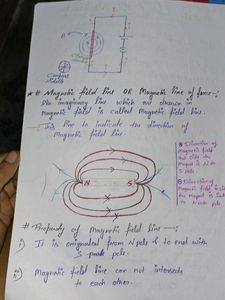 Compass
Needle
# Magnetic field line OR Magnetic line of force-:
The imaginary line which are drawn in
magnetic field is called Magnetic field line.
This line to indicate the direction of
Magnetic field line.
Direction of
Magnetic field
out side the
Magnet is N to
S pole
N S
Direction of
Magnetic field
the Magnet is
North pole.
# Property of Magnetic field line —:
i) It is originated from N pole & to end with
S pole.
ii) Magnetic field line can not intersects
to each other.